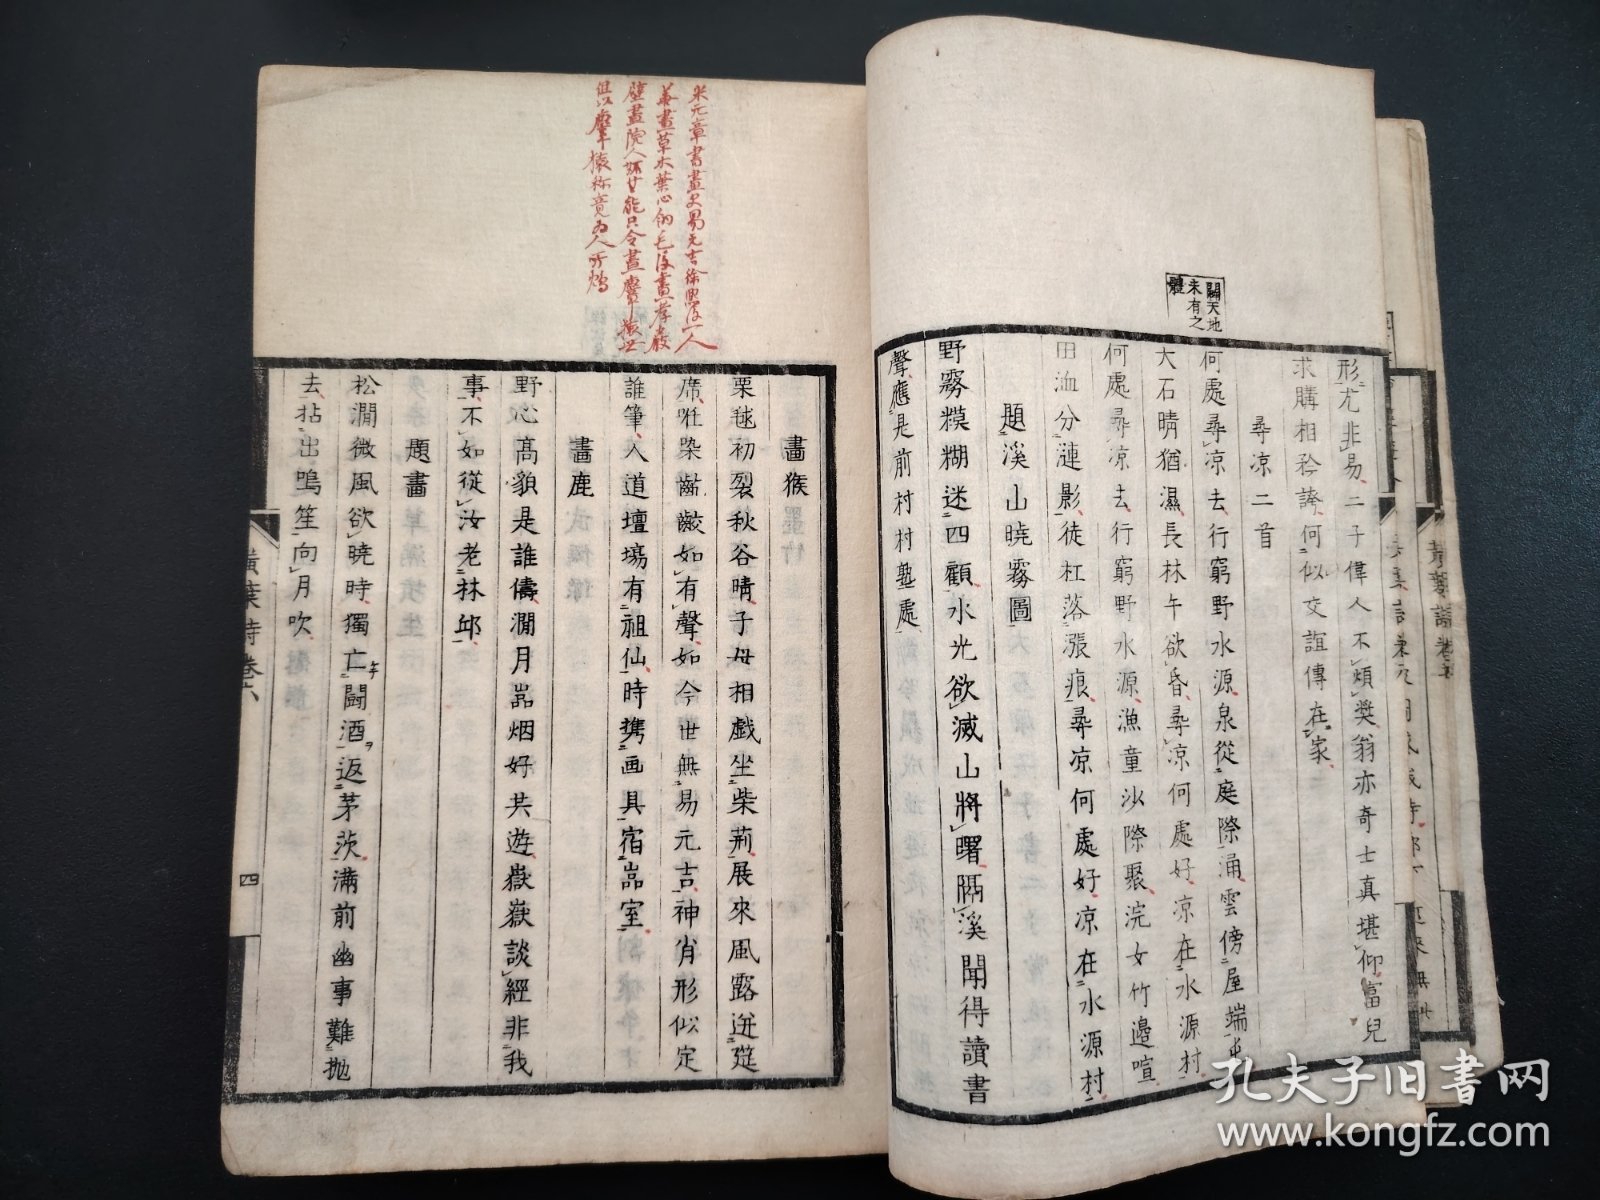 闢天地
未有之
體
形尤非易二子偉人不煩奬翁亦奇士真堪仰富兒
求購相矜誇何似交誼傳在家
尋凉二首
何處尋凉去行窮野水源泉從庭際涌雲傍屋端屯
大石晴猶濕長林午欲昏尋凉何處好凉在水源村
何處尋凉去行窮野水源漁童沙際聚浣女竹邉喧
田洫分漣影徒杠落漲痕尋凉何處好凉在水源村
題溪山曉霧圖
野霧模糊迷四顧水光欲滅山將曙隔溪聞得讀書
聲應是前村村塾處
米元章書畫史易元吉徐熙後一人
善畫草木葉心
壁畫院人妬其能只令畫麞猿
但以麞猿称竟為人所鴆
畵猴
栗毬初裂秋谷晴子母相戲坐柴荊展來風露迸筵
席咀染齒齩如有聲如今世無易元吉神肖形似定
誰筆人道壇場有祖仙時携画具宿嵓室
畵鹿
野心髙貌是誰儔澗月嵓烟好共遊嶽嶽談經非我
事不如從汝老林邱
題畵
松澗微風欲曉時獨亡鬪酒返茅茨滿前幽事難抛
去拈出嗚笙向月吹
黄葉詩卷六
四
黄葉詩卷五
孔夫子旧书网
www.kongfz.com